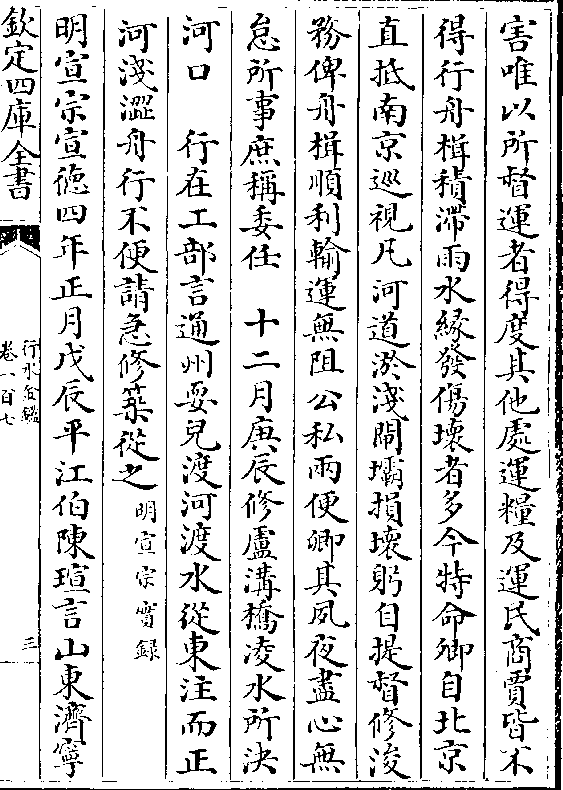 害唯以所督運者得度其他處運糧及運民商賈皆不
得行舟楫積滯雨水緣發傷壞者多今特命卿自北京
直抵南京巡視凡河道淤淺閘壩損壞躬自提督修浚
務俾舟楫順利輸運無阻公私兩便卿其夙夜盡心無
怠所事庶稱委任　十二月庚辰修盧溝橋凌水所決
河口　行在工部言通州耍兒渡河渡水從東注而正
河淺澀舟行不便請急修築從之明宣宗實録
明宣宗宣德四年正月戊辰平江伯陳瑄言山東濟寧
欽定四庫全書
行水金鑑
卷一百七
三